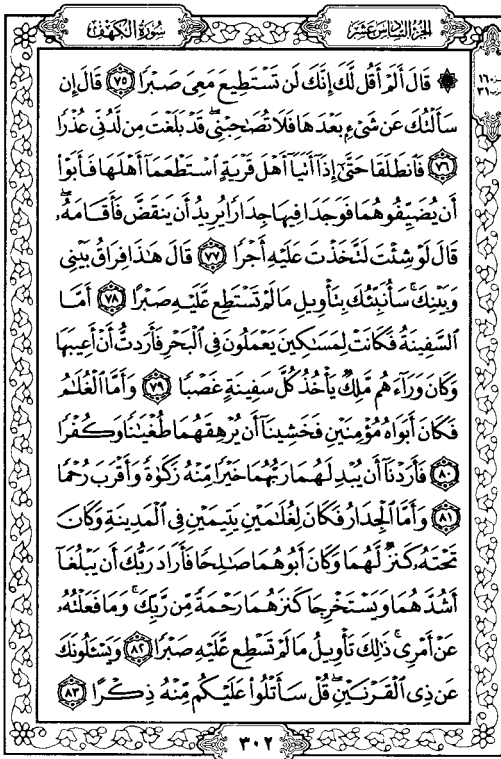 سُورَةُ الْكَهْفِ
الجُزْءُ السَّادِسُ عَشَرَ
۞ قَالَ أَلَمْ أَقُل لَّكَ إِنَّكَ لَن تَسْتَطِيعَ مَعِىَ صَبْرًا ٧٥ قَالَ إِن
سَأَلْتُكَ عَن شَىْءٍ بَعْدَهَا فَلَا تُصَـٰحِبْنِى ۖ قَدْ بَلَغْتَ مِن لَّدُنِّى عُذْرًا
٧٦ فَٱنطَلَقَا حَتَّىٰٓ إِذَآ أَتَيَآ أَهْلَ قَرْيَةٍ ٱسْتَطْعَمَآ أَهْلَهَا فَأَبَوْا۟
أَن يُضَيِّفُوهُمَا فَوَجَدَا فِيهَا جِدَارًا يُرِيدُ أَن يَنقَضَّ فَأَقَامَهُۥ ۖ
قَالَ لَوْ شِئْتَ لَتَّخَذْتَ عَلَيْهِ أَجْرًا ٧٧ قَالَ هَـٰذَا فِرَاقُ بَيْنِى
وَبَيْنِكَ ۚ سَأُنَبِّئُكَ بِتَأْوِيلِ مَا لَمْ تَسْتَطِع عَّلَيْهِ صَبْرًا ٧٨ أَمَّا
ٱلسَّفِينَةُ فَكَانَتْ لِمَسَـٰكِينَ يَعْمَلُونَ فِى ٱلْبَحْرِ فَأَرَدتُّ أَنْ أَعِيبَهَا
وَكَانَ وَرَآءَهُم مَّلِكٌ يَأْخُذُ كُلَّ سَفِينَةٍ غَصْبًا ٧٩ وَأَمَّا ٱلْغُلَـٰمُ
فَكَانَ أَبَوَاهُ مُؤْمِنَيْنِ فَخَشِينَآ أَن يُرْهِقَهُمَا طُغْيَـٰنًا وَكُفْرًا
٨٠ فَأَرَدْنَآ أَن يُبْدِلَهُمَا رَبُّهُمَا خَيْرًا مِّنْهُ زَكَوٰةً وَأَقْرَبَ رُحْمًا
٨١ وَأَمَّا ٱلْجِدَارُ فَكَانَ لِغُلَـٰمَيْنِ يَتِيمَيْنِ فِى ٱلْمَدِينَةِ وَكَانَ
تَحْتَهُۥ كَنزٌ لَّهُمَا وَكَانَ أَبُوهُمَا صَـٰلِحًا فَأَرَادَ رَبُّكَ أَن يَبْلُغَآ
أَشُدَّهُمَا وَيَسْتَخْرِجَا كَنزَهُمَا رَحْمَةً مِّن رَّبِّكَ ۚ وَمَا فَعَلْتُهُۥ
عَنْ أَمْرِى ۚ ذَٰلِكَ تَأْوِيلُ مَا لَمْ تَسْطِع عَّلَيْهِ صَبْرًا ٨٢ وَيَسْـَٔلُونَكَ
عَن ذِى ٱلْقَرْنَيْنِ ۖ قُلْ سَأَتْلُوا۟ عَلَيْكُم مِّنْهُ ذِكْرًا ٨٣
٣٠٢